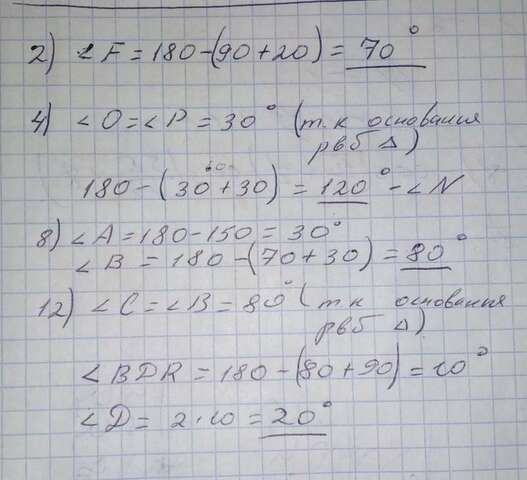 2) ∠F = 180-(90+20) = 70°
4) ∠O = ∠P = 30° (т.к основания
рвб △)
60
180-(30+30) = 120° - ∠N
8) ∠A = 180-150 = 30°
∠B = 180-(70+30) = 80°
12) ∠C = ∠B = 80° (т.к основания
рвб △)
∠BDR = 180-(80+90) = 10°
∠D = 2·10 = 20°